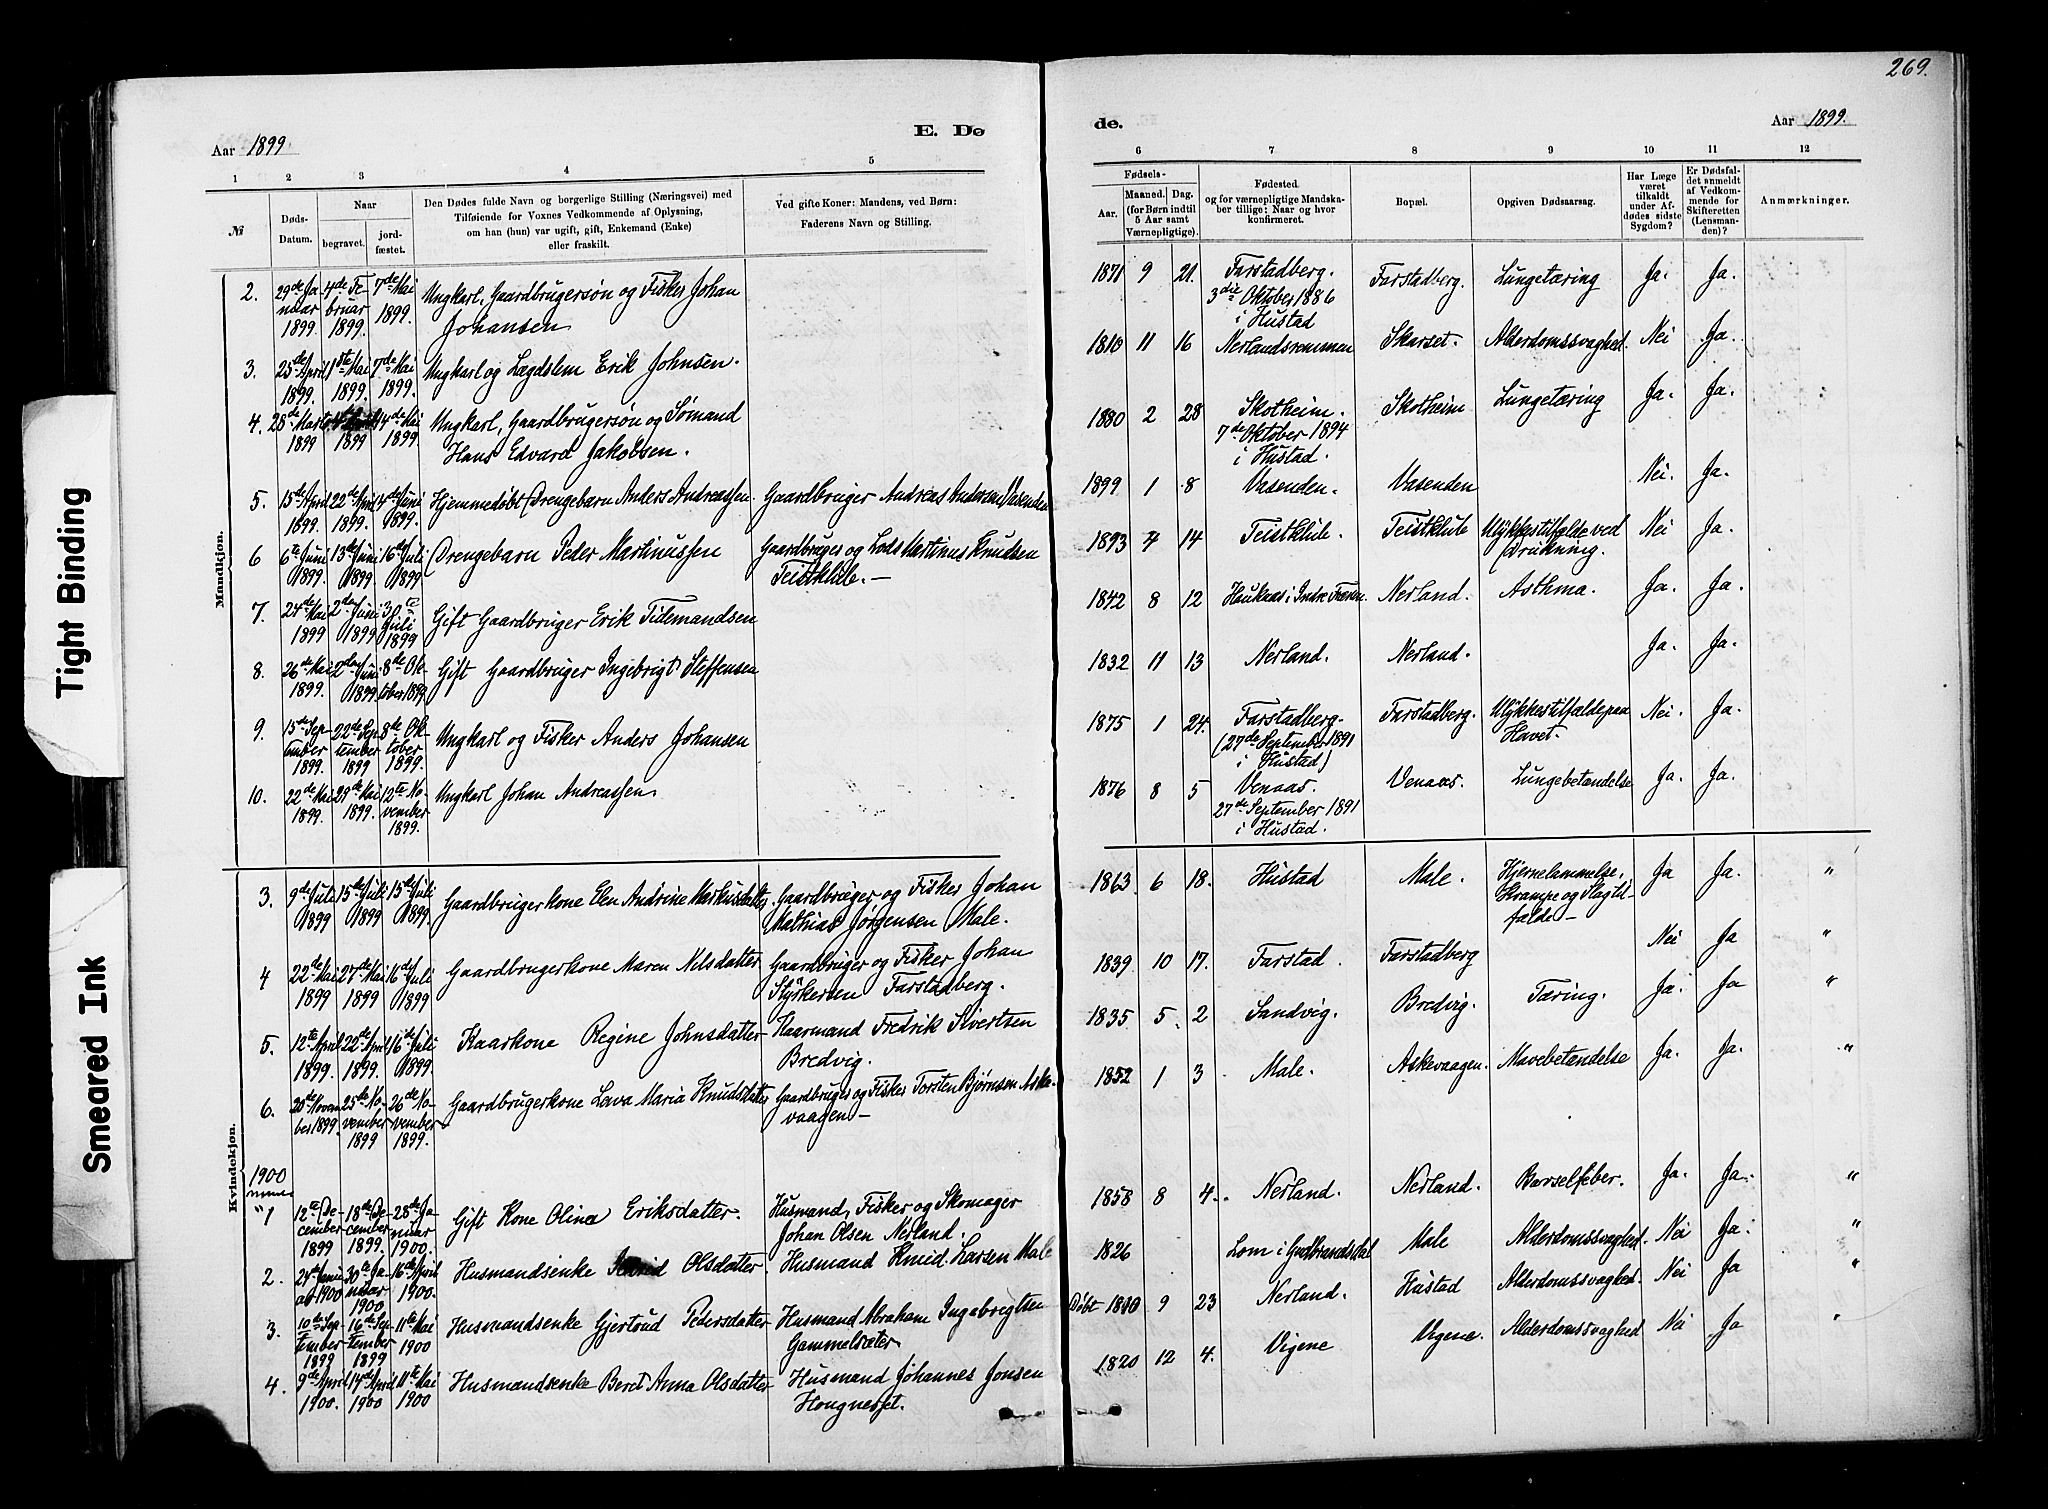 269.
Tight Binding
Smeared Ink
Aar 1899
E. Dø
1 2 3 4 5
№
Døds-
Datum.
Naar
begravet.
jord-
fæstet.
Den Dødes fulde Navn og borgerlige Stilling (Næringsvei) med
Tilføiende for Voxnes Vedkommende af Oplysning,
om han (hun) var ugift, gift, Enkemand (Enke)
eller fraskilt.
Ved gifte Koner: Mandens, ved Børn:
Faderens Navn og Stilling.
Mandkjøn.
2. 29de Ja 4de Fe 7de Mai Ungkarl, Gaardbrugersøn og Fisker Johan
nuar bruar 1899. Johansen
1899. 1899.
3. 25de April 1ste Mai 7de Mai Ungkarl og Lægdslem Erik Johnsen.
1899. 1899. 1899.
4. 28de Marts 14de Mai Ungkarl, Gaardbrugersøn og Sømand
1899 1899 1899 Hans Edvard Jakobsen.
5. 15de April 22de April 4de Juni Hjemmedøbt Drengebarn Anders Andreassen Gaardbruger Andreas Andersen Vasenden
1899. 1899. 1899.
6 6te Juni 13de Juni 16de Juli Drengebarn Peder Martinussen Gaardbruger og Lods Martinus Knudsen
1899. 1899. 1899 Teistklub.—
7. 24de Mai 2den Juni Gift Gaardbruger Erik Tidemandsen
1899 1899 Juli
1899
8. 26de Mai 2den Juni 8de Ok- Gift Gaardbruger Ingebrigt Steffensen
1899. 1899 tober 1899
9. 15de Sep- 22de Sep 8de Ok- Ungkarl og Fisker Anders Johansen
tember tember tober
1899. 1899 1899.
10. 22de Mai 29de Mai 12te No- Ungkarl Johan Andreassen
1899. 1899. vember
1899.
Kvindekjøn.
3. 9de Juli 15de Juli 15de Juli Gaardbrugerkone Elen Andrine Markusdatter Gaardbruger og Fisker Johan
1899 1899 1899. Mathias Jørgensen Male.
4 22de Mai 27de Mai 16de Juli Gaardbrugerkone Maren Nilsdatter Gaardbruger og Fisker Johan
1899 1899 1899 Styrkersen Farstadberg.
5. 12te April 22de April 16de Juli Kaarkone Regine Johnsdatter Kaarmand Fredrik Sivertsen
1899. 1899. 1899. Bredvig.
6. 20de Novem 25de No- 26de No- Gaardbrugerkone Lava Maria Knudsdatter Gaardbruger og Fisker Torsten Bjørnsen Aske-
ber 1899. vember vember vaagen—
1899 1899.
1900
" 1 12te De- 18de De- 28de Ja- Gift Kone Olina Eriksdatter. Husmand, Fisker og Skomager
cember cember nuar Johan Olsen Nerland.
1899 1899. 1900.
2. 24de Janu 30te Ja- 16de April Husmandsenke Olsdatter. Husmand Knud Larsen Male
ar 1900 nuar 1900.
1900
3. 10de Sep 16de Sep 11te Mai Husmandsenke Gjertrud Pedersdatter Husmand Abraham Ingebrigtsen
tember tember 1900 Gammelsæter
1899 1899
4. 9de April 14de April 11te Mai Husmandsenke Beret Anna Olsdatter Husmand Johannes Jonsen
1900. 1900 1900 Hougnesset.
de.
Aar 1899.
6 7 8 9 10 11 12
Fødsels-
Aar.
Maaned. Dag.
(for Børn indtil
5 Aar samt
Værnepligtige).
Fødested.
og for værnepligtige Mandska-
ber tillige: Naar og hvor
konfirmeret.
Bopæl.
Opgiven Dødsaarsag.
Har Læge
været
tilkaldt
under Af-
dødes sidste
Sygdom?
Er Dødsfal-
det anmeldt
af Vedkom-
mende for
Skifteretten
(Lensman-
den)?
Anmærkninger.
1871 9 21. Farstadberg. Farstadberg. Lungetæring Ja. Ja.
3die Oktober 1886
i Hustad
1810 11 16 Nerlandsremmen Skarset. Alderdomssvaghed. Nei Ja.
1880 2 28 Skotheim. Skotheim Lungetæring Ja. Ja.
7de Oktober 1894
i Hustad.
1899 1 8 Vasenden. Vasenden Nei. Ja.
1893 4 14 Teistklub. Teistklub Ulykkestilfælde ved Nei Ja.
Drukning.
1842 8 12 Haukaas i Indre Fræn. Nerland. Asthma. Ja. Ja.
1832 11 13 Nerland. Nerland. Ja. Ja.
1875 1 24. Farstadberg- Farstadberg. Ulykkestilfælde paa Nei. Ja.
(27de September 1891 Havet.
i Hustad)
1876 8 5 Venaas. Venaas. Lungebetændelse Ja. Ja.
27de September 1891
i Hustad.
1863 6 18. Hustad Male. Hjernelammelse, Ja Ja. "
Krampe og Slagtil-
fælde—
1839 10 17. Farstad. Farstadberg Nei Ja "
1835 5. 2 Sandvig. Bredvig. Tæring. Ja. Ja "
1852 1 3 Male. Askevaagen. Mavebetændelse Ja. Ja. "
1858 8 4. Nerland. Nerland. Barselfeber. Ja. Ja. "
1826 Lom i Gudbrandsdal Male Alderdomssvaghed. Nei Ja. "
Døbt 1810 9 23 Nerland. Hustad Alderdomssvaghed. Nei Ja "
1820 12 4. Vigene Vigene. Alderdomssvaghed Nei Ja "